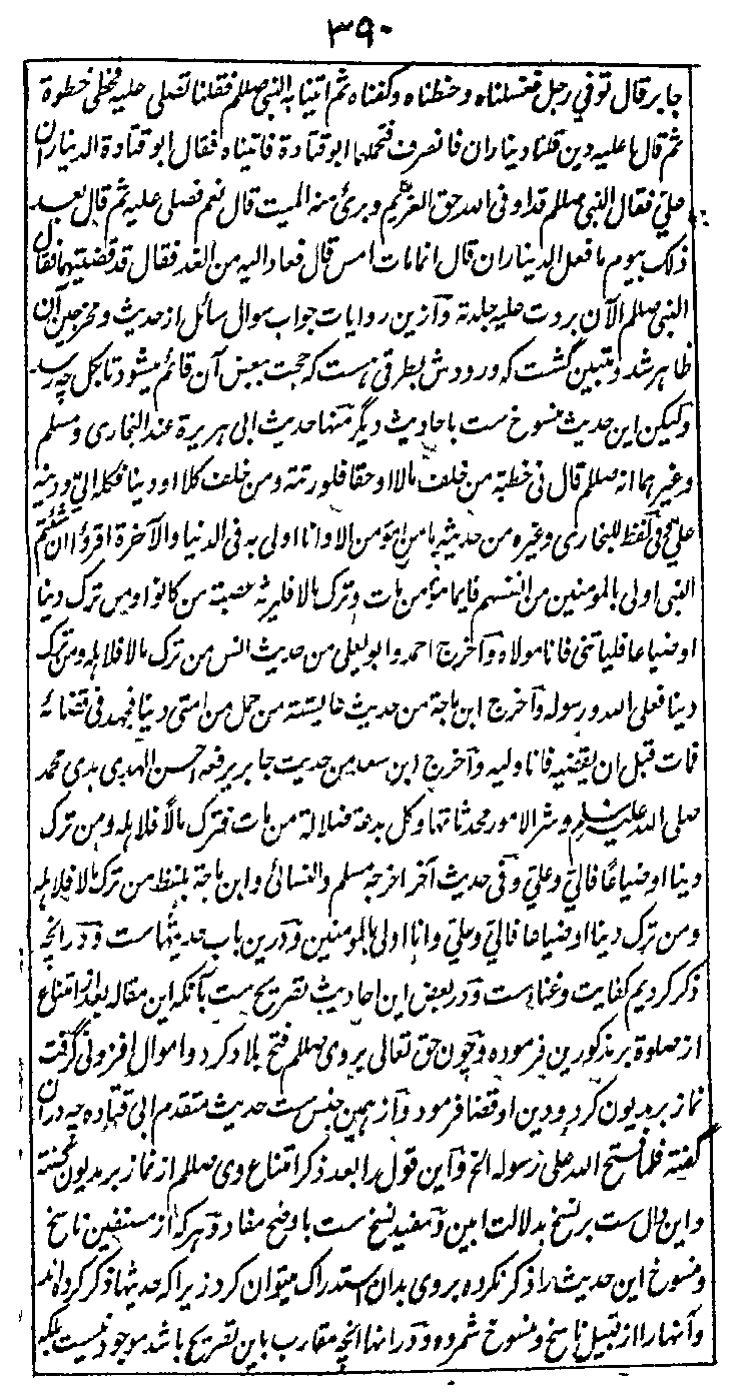 ٣٩٠
جابر قال توفي رجل فغسلناه وحنطناه وكفناه ثم اتينا به النبي صللم فقلنا تصلي عليه فخطى خطوة
ثم قال ا عليه دين قلنا ديناران فانصرف فتحملهما ابو قتادة فاتيناه فقال ابو قتادة الديناران
علي فقال النبي صللم قد اوفى الله حق الغريم وبرئ منه الميت قال نعم فصلى عليه ثم قال بعد
ذلک بيوم ما فعل الديناران قال انما مات امس قال فعاد اليه من الغد فقال قد قضيتهما فقال
النبي صللم الآن بردت عليه جلدته وازين روايات جواب سوال سائل از حديث ومخرجين آن
ظاهر شد ومتبين گشت که ورودش بطرقی ست که حجت ببعض آن قائم ميشود تا بکل چه رسد
وليکن اين حديث منسوخ ست باحاديث ديگر منها حديث ابی هريرة عند البخاری ومسلم
وغيرهما انه صللم قال فی خطبة من خلف مالا او حقا فلورثته ومن خلف کلا او دينا فکله الیّ ودينه
علیّ وفی لفظ للبخاری وغيره من حديثه ما من مؤمن الا وانا اولی به فی الدنيا والآخرة اقرؤا ان شئتم
النبی اولی بالمومنين من انفسهم فايما مؤمن مات وترک مالا فليرثه عصبته من کانوا ومن ترک دينا
او ضياعا فلياتنی فانا مولاه وآخرج احمد وابو يعلی من حديث انس من ترک مالا فلاهله ومن ترک
دينا فعلی الله ورسوله وآخرج ابن ماجة من حديث عايشته من حمل من امتی دينا فجهد فی قضائه
فمات قبل ان يقضيه فانا وليه وآخرج ابن سعد من حديث جابر يرفعه احسن الهدی هدی محمد
صلی الله عليه وسلم وشر الامور محدثاتها وکل بدعة ضلالة من مات فترک مالاً فلاهله ومن ترک
دينا او ضياعًا فالیّ وعلیّ وفی حديث آخر اخرجه مسلم والنسائی وابن ماجة بلفظ من ترک مالا فلاهله
ومن ترک دينا او ضياعا فالیّ وعلیّ وانا اولی بالمومنين ودرين باب حديثهاست ودر آنچه
ذکر کرديم کفايت وغناست ودر بعض اين احاديث تصريح ست بآنکه اين مقاله بعد از امتناع
از صلوة بر مذکورين فرموده وچون حق تعالی بر وی صللم فتح بلاد کرد و اموال افزونی گرفت
نماز بر مديون کرد ودين او قضا فرمود وآز همين جنس ست حديث متقدم ابی قتاده چه دران
گفته فلما فتح الله علی رسوله الخ وآين قول را بعد ذکر امتناع وی صللم از نماز بر مديون گفته
واين دال ست بر نسخ بدلالت ابين ومفيد نسخ ست باوضح مفاد وهرکه از مصنفين ناسخ
ومنسوخ اين حديث را ذکر نکرده بر وی بدان استدراک ميتوان کرد زيراکه حديثها ذکر کرده اند
وآنها را از قبيل ناسخ ومنسوخ شمرده ودر انها آنچه مقارب باين تصريح باشد موجود نيست بلکه